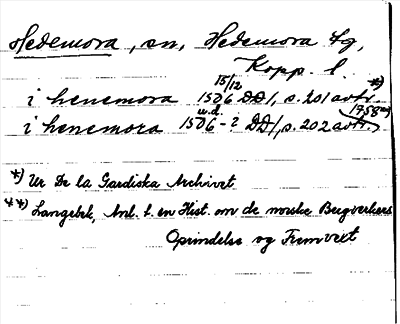 Hedemora, sn, Hedemora tg,
Kopp. l.
i henemora 1506 15/12 DD1, s. 201 avtr. *)
i henemora 1506-? u.d. DD1, s. 202 avtr. (1758 **)
*) Ur De la Gardiska Archivet
**) Langebek, Anl. t. en Hist. om de norske Bergverkers
Oprindelse og Fremvext